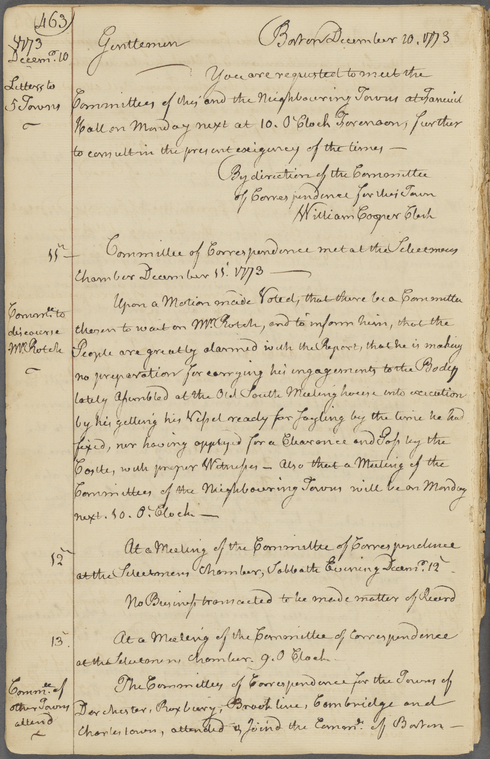 463
1773
Decemr. 10
Letters to
5 Towns
Gentlemen
Boston December 10. 1773
You are requested to meet the
Committees of this and the Neighbouring Towns at Faneuil
Hall on Monday next at 10. O'Clock Forenoon, further
to consult in the present exigency of the times —
By direction of the Committee
of Correspondence for this Town
William Cooper Clerk
11th
Committee of Correspondence met at the Selectmens
Chamber December 11. 1773 —
Commee. to
discourse
Mr. Rotch
Upon a Motion made Voted, that there be a Committee
chosen to wait on Mr. Rotch, and to inform him, that the
People are greatly alarmed with the Report, that he is making
no preparation for carrying his engagements to the Body
lately Assembled at the Old South Meeting house into execution
by his getting his Vessel ready for Sayling by the time he had
fixed, nor having applyed for a Clearance and Pass by the
Castle, with proper Witnesses — Also that a Meeting of the
Committees of the Neighbouring Towns will be on Monday
next. 10. O'Clock —
12th
At a Meeting of the Committee of Correspondence
at the Selectmens Chamber, Sabbath Evening Decemr. 12th.
No Business transacted to be made matter of Record
13th
At a Meeting of the Committee of Correspondence
at the Selectmens Chamber. 9. O Clock.
Commee. of
other Towns
attend
The Committees of Correspondence for the Towns of
Dorchester, Roxbury, Brookline, Cambridge and
Charlestown, attended & Joind the Commee. of Boston —